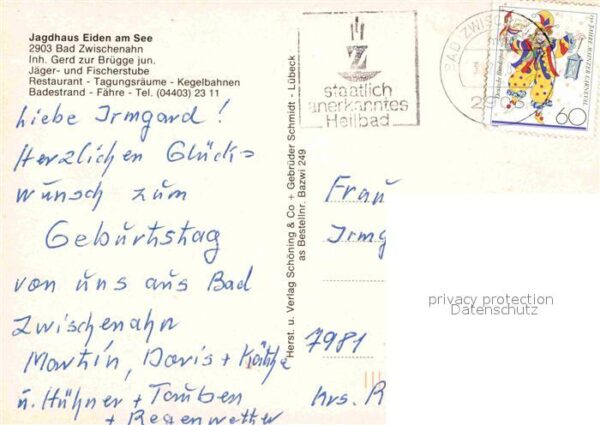 Jagdhaus Eiden am See
2903 Bad Zwischenahn
Inh. Gerd zur Brügge jun.
Jäger- und Fischerstube
Restaurant - Tagungsräume - Kegelbahnen
Badestrand - Fähre - Tel. (04403) 23 11
Liebe Irmgard!
Herzlichen Glück=
wunsch zum
Geburtstag
von uns aus Bad
Zwischenahn
Martin, Doris + Käthe
u. Hühner + Tauben
+ Regenwetter
Herst. u. Verlag Schöning & Co + Gebrüder Schmidt - Lübeck
as Bestellnr. Bazwi 249
Z
staatlich
anerkanntes
Heilbad
BAD ZWISCHEN
2903
60
Frau
Irmg
7981
Krs. R
privacy protection
Datenschutz